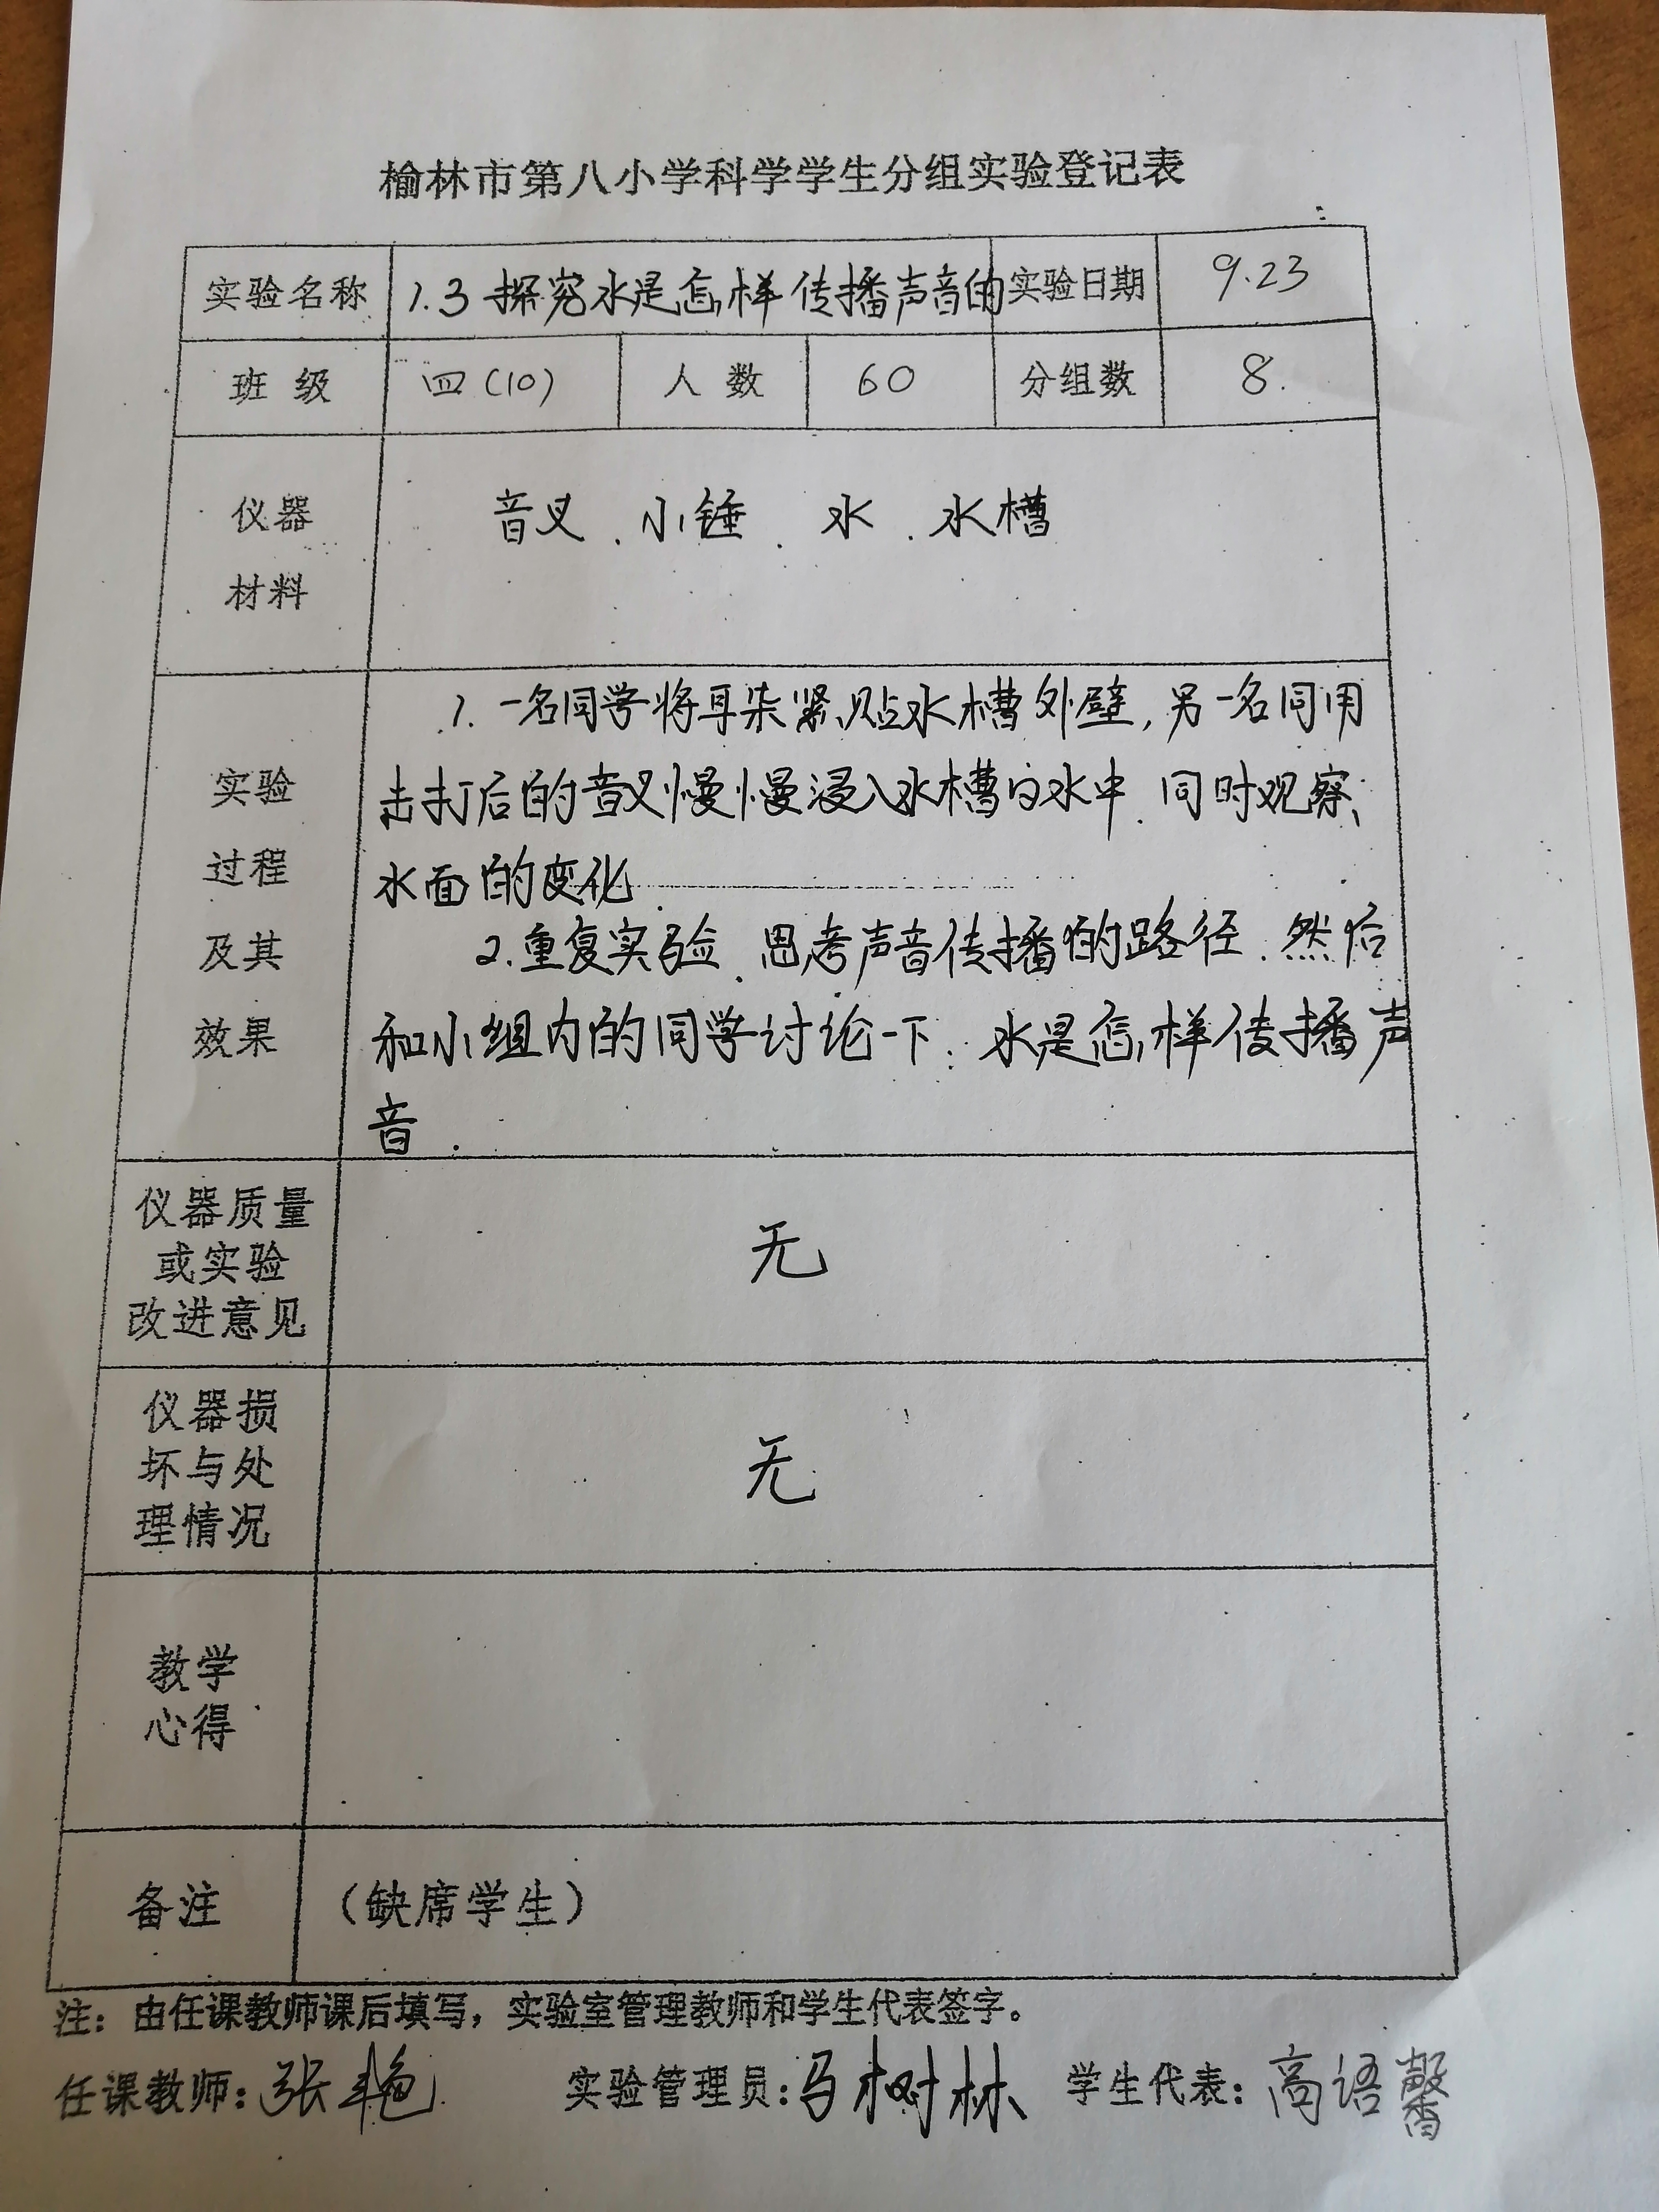 榆林市第八小学科学学生分组实验登记表
实验名称 1.3 探究水是怎样传播声音的 实验日期 9.23
班级 四(10) 人数 60 分组数 8.
仪器 音叉、小锤、水、水槽
材料
1. 一名同学将耳朵紧贴水槽外壁,另一名同用
实验 击打后的音叉慢慢浸入水槽的水中.同时观察
过程 水面的变化.
及其 2.重复实验、思考声音传播的路径.然后
效果 和小组内的同学讨论一下:水是怎样传播声
音.
仪器质量
或实验 无
改进意见
仪器损
坏与处 无
理情况
教学
心得
备注 (缺席学生)
注:由任课教师课后填写,实验室管理教师和学生代表签字。
任课教师:张艳 实验管理员:马树林 学生代表:高语馨